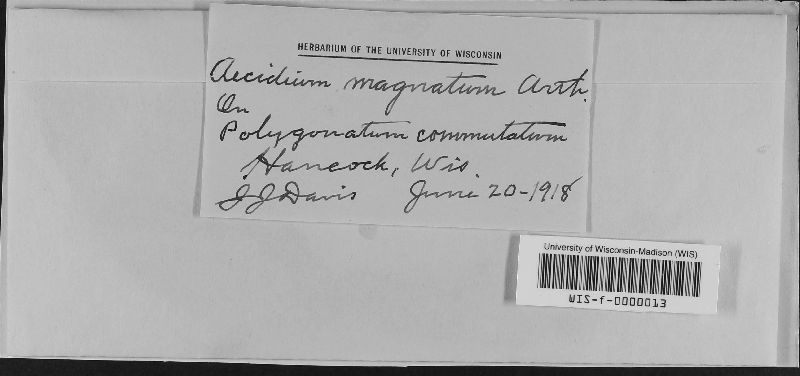 HERBARIUM OF THE UNIVERSITY OF WISCONSIN
Aecidium magnatum Arth.
On
Polygonatum commutatum
Hancock, Wis.
J J Davis June 20-1918
University of Wisconsin-Madison (WIS)
WIS-f-0000013